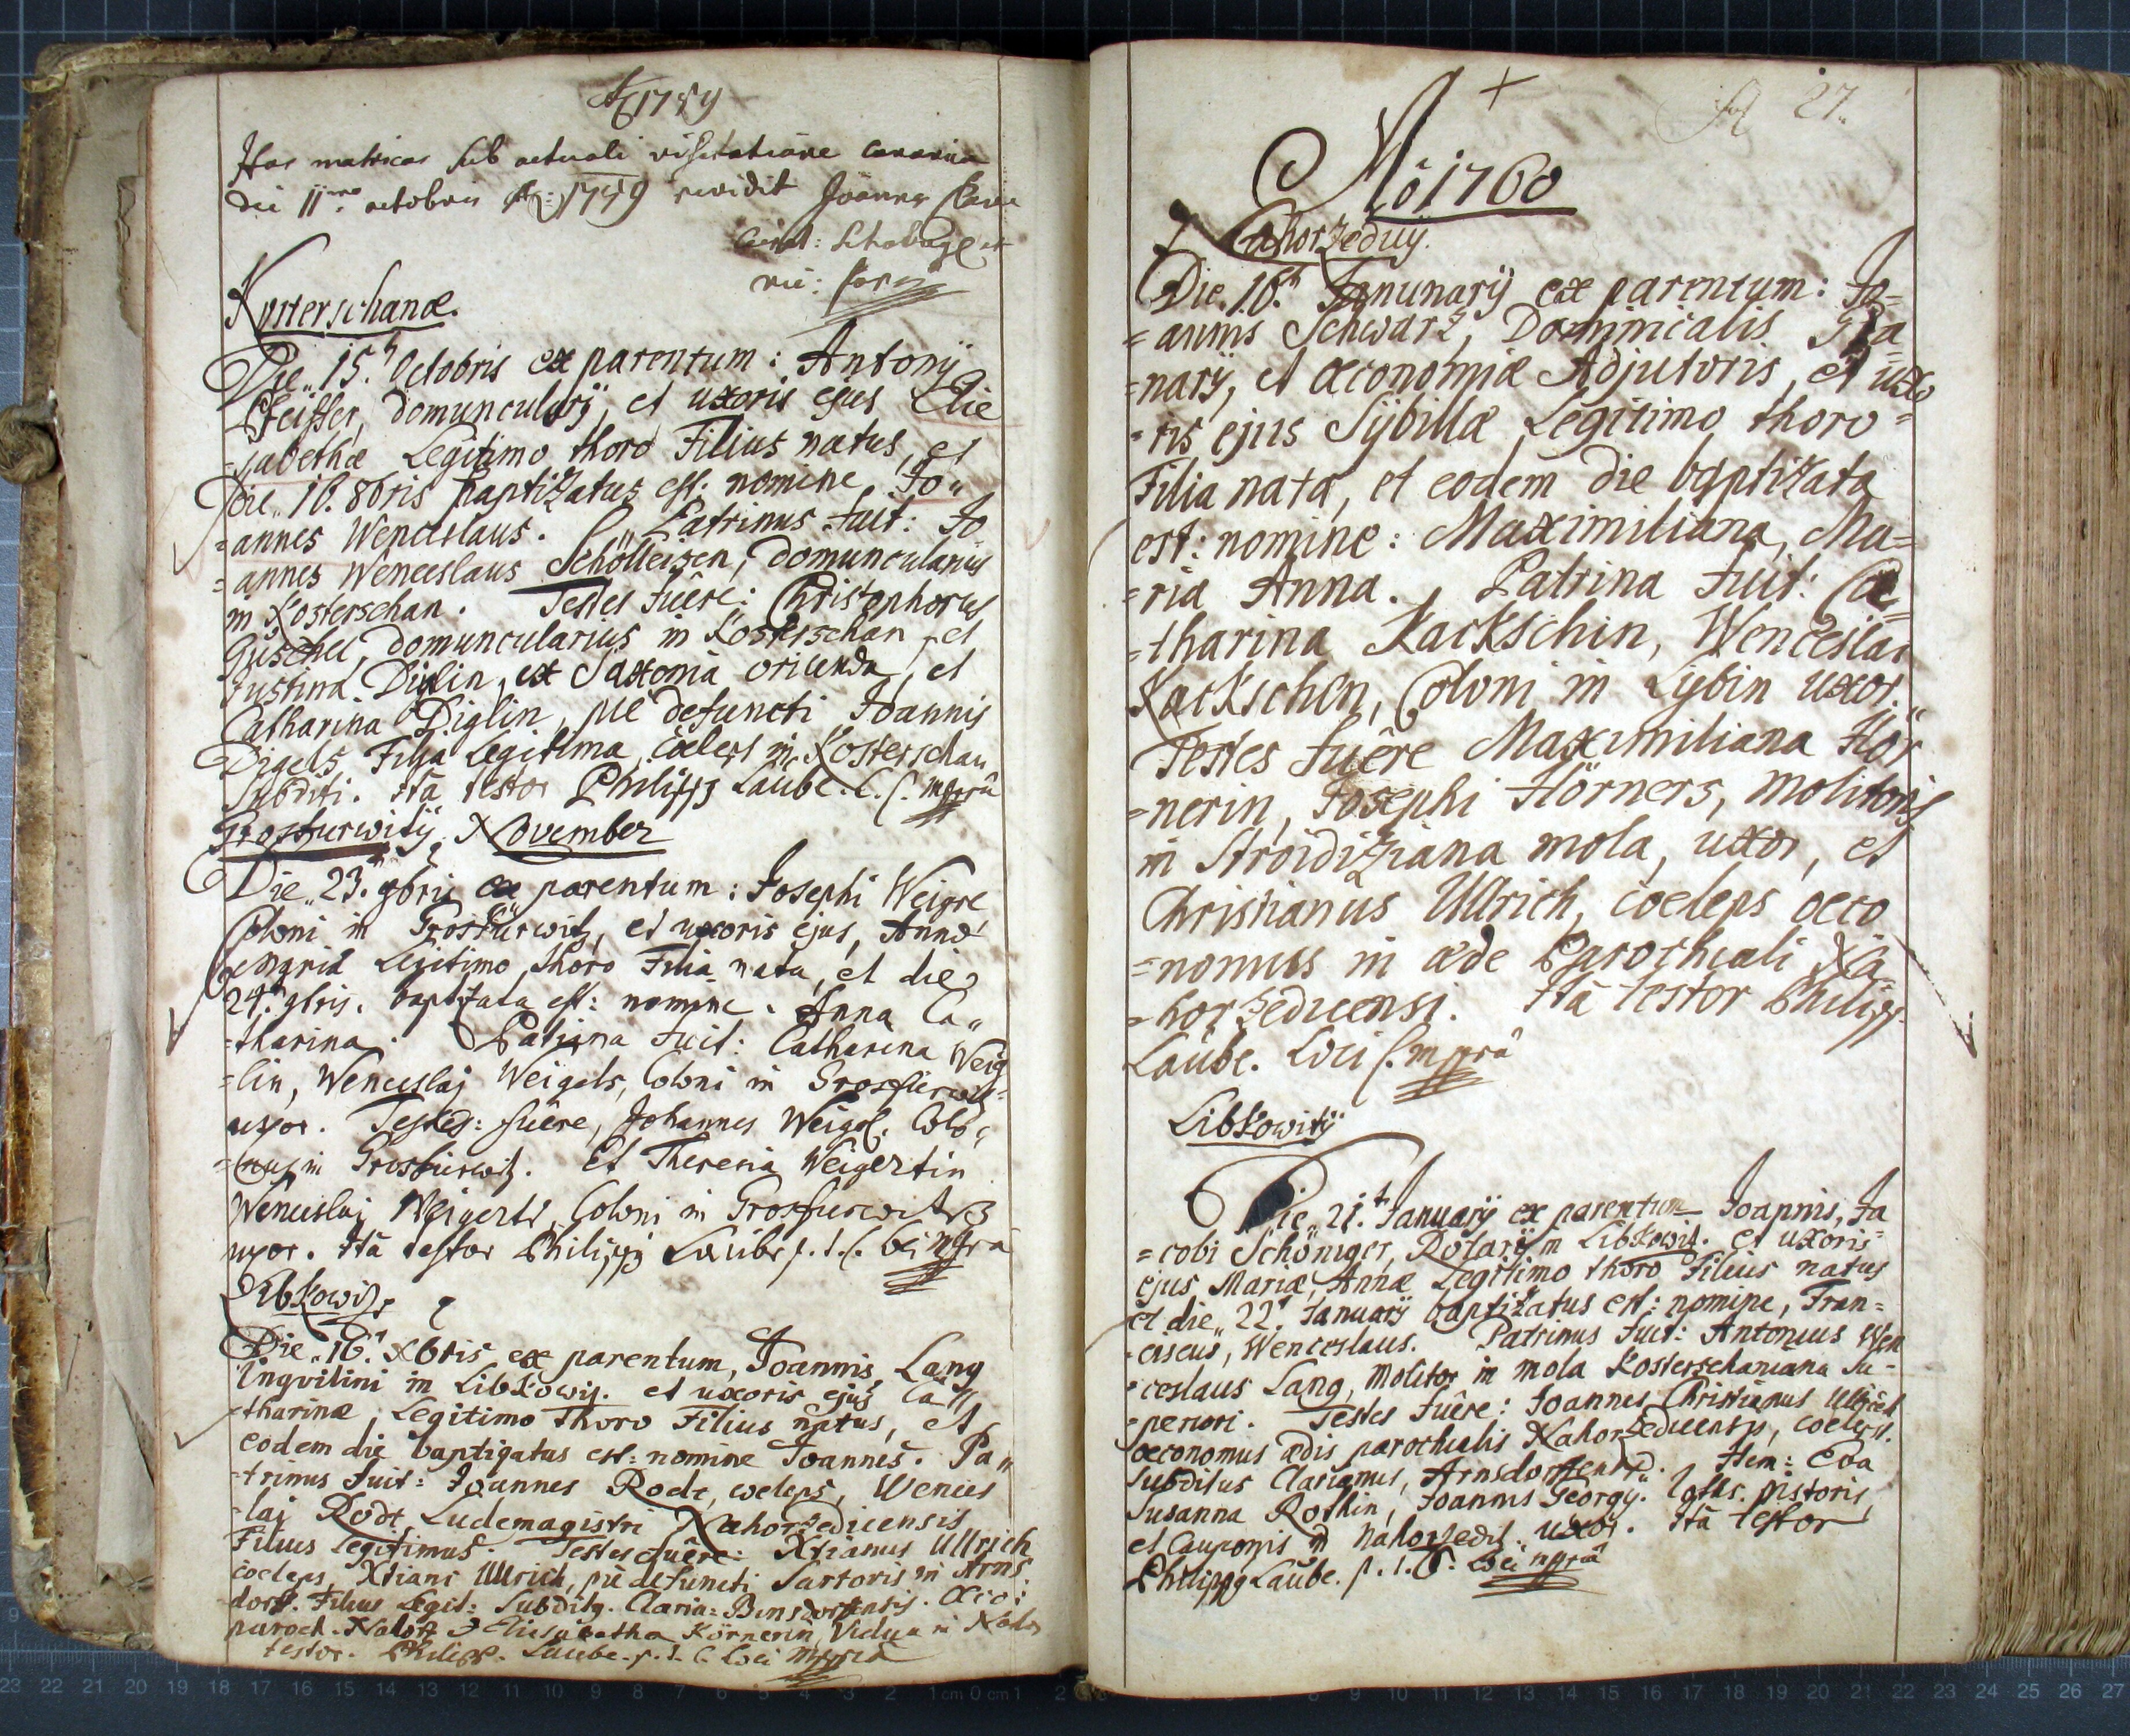 Aõ 1759
Has matricas sub actuali visitatione canonica
die 11ma octobris Aõ: 1759 revidit Joannes
Kosterschanæ.
Die„ 15.t Octobris ex parentum: Antonij
Pfeiffer, domuncularij, et uxoris ejus Elie
=sabethæ Legitimo thoro Filius natus, et
die„ 16. 8bris baptizatus est: nomine, Jo„
=annes Wenceslaus. Patrinus fuit: Jo
=annes Wenceslaus Schölleisen, domuncularius
in Kosterschan. Testes fuêre: Christophorus
Guschel, domuncularius in Kosterschan, et
Justina Diglin, ex Saxonia oriunda, et
Catharina Diglin, pie defuncti Joannis
Digels, Filia Legitima, cœlebs in Kosterschan
Subditi. Ità testor Philipp Laube. L. C. mpriâ
Grosturwitÿ, November
Die„ 23.t 9bris ex parentum: Josephi Weigre
Coloni in Grosturwitz, et uxoris ejus, Annæ
Legitimo thoro Filia nata, et die
24.t 9bris. baptizata est: nomine. Anna Ca„
=tharina. Patrina fuit: Catharina Weig
=lin, Wenceslaj Weigels, Coloni in
uxor. Testes: fuêre, Johannes Weigel. Colo„
=nus in Et Theresia Weigertin
Wenceslaj Weigerts, Coloni in
uxor. Ità testor Philipp Laube p. t. C. loci mpriâ
Libkowitz
Die„ 16.t Xbris ex parentum, Joannis, Lang
Inqvilini in Libkowiz. et uxoris ejus Ca„
=tharinæ, Legitimo Thoro Filius natus, et
eodem die baptizatus est: nomine Joannes. Pa„
=trinus fuit: Joannes Rodt, coelebs, Wences
=laj Rodt Ludemagistri Nahorzedicensis
Filius Legitimus. Testes fuêre: Xtianus Ullrich
coelebs, Xtiani Ullrich, piè defuncti Sartoris in Arns
dorf. Filius Legit: Subditg. Claria=
paroch. Elisabetha Körnerin, Vidua in
testor. Philipp. Laube. p. t. C. Loci mpriâ
27.
Aõ 1760
Nahorzeduÿ.
Die. 16.t Janunarij ex parentum: Jo=
=annis Schwarz, Dominicalis Gra
=narij, et œconomiæ Adjutoris, et uxo
=ris ejus Sÿbillæ Legitimo thoro=
Filia nata, et eodem die baptizata
est: nomine: Maximiliana, Ma=
=ria Anna. Patrina fuit: Ca=
=tharina Kackschin, Wenceslai
Kackschen, Coloni in Lybin uxor.„
Testes fuêre Maximiliana Hör
=nerin, Josephi Hörners, Molitoris
in Stroidiziana mola, uxor, et
Christianus Ullrich, coelebs oeco
=nomus in æde Parochiali Na=
=horzedicensi. Ità testor Philipp
Laube. Loci C. mpriâ
Libkowitÿ
Die„ 21.t Januarij ex parentum Joannis, Ja
=cobi Schöniger, Rotarij in Libkowiz. et uxoris
ejus Mariæ, Annæ Legitimo thoro Filius natus
et die„ 22.t Januarij baptizatus est: nomine, Fran=
=ciscus, Wenceslaus. Patrinus fuit: Antonius Wen
=ceslaus Lang, Molitor in mola Kosterschaniana Su=
=periori. Testes fuêre: Joannes Christianus Ullrich
œconomus ædis parochialis Nahorzedicensis, coelebs.
Subditus Clarianus, Item: Eva
Susanna Rothin, Joannis Georgÿ. pistoris,
et Cauponis in Nahorzedit. uxor. Ità testor
Philipp Laube. p. t. C. Loci mpriâ